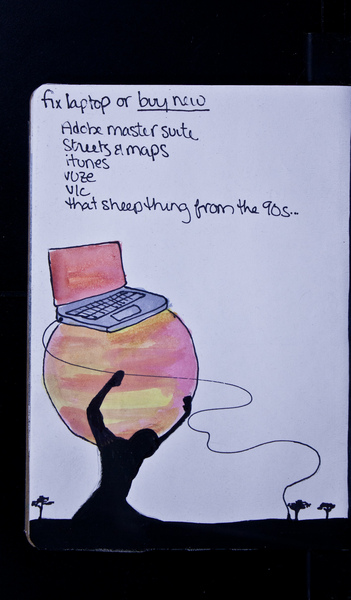 fix laptop or buy new
Adobe master suite
Streets & maps
itunes
vuze
vlc
that sheep thing from the 90s...